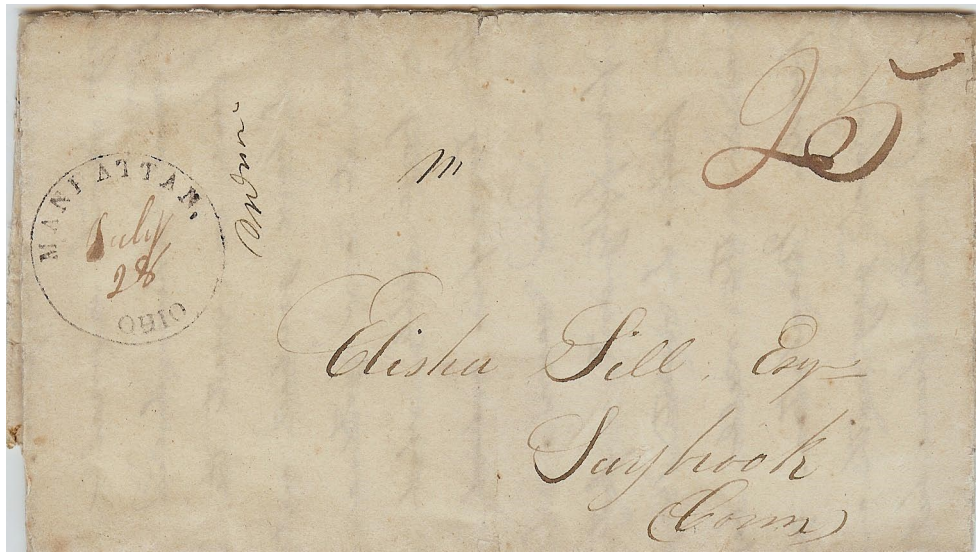 MANHATTAN.
July
28
OHIO
m
25
Elisha Sill, Esq
Saybrook
(Conn)